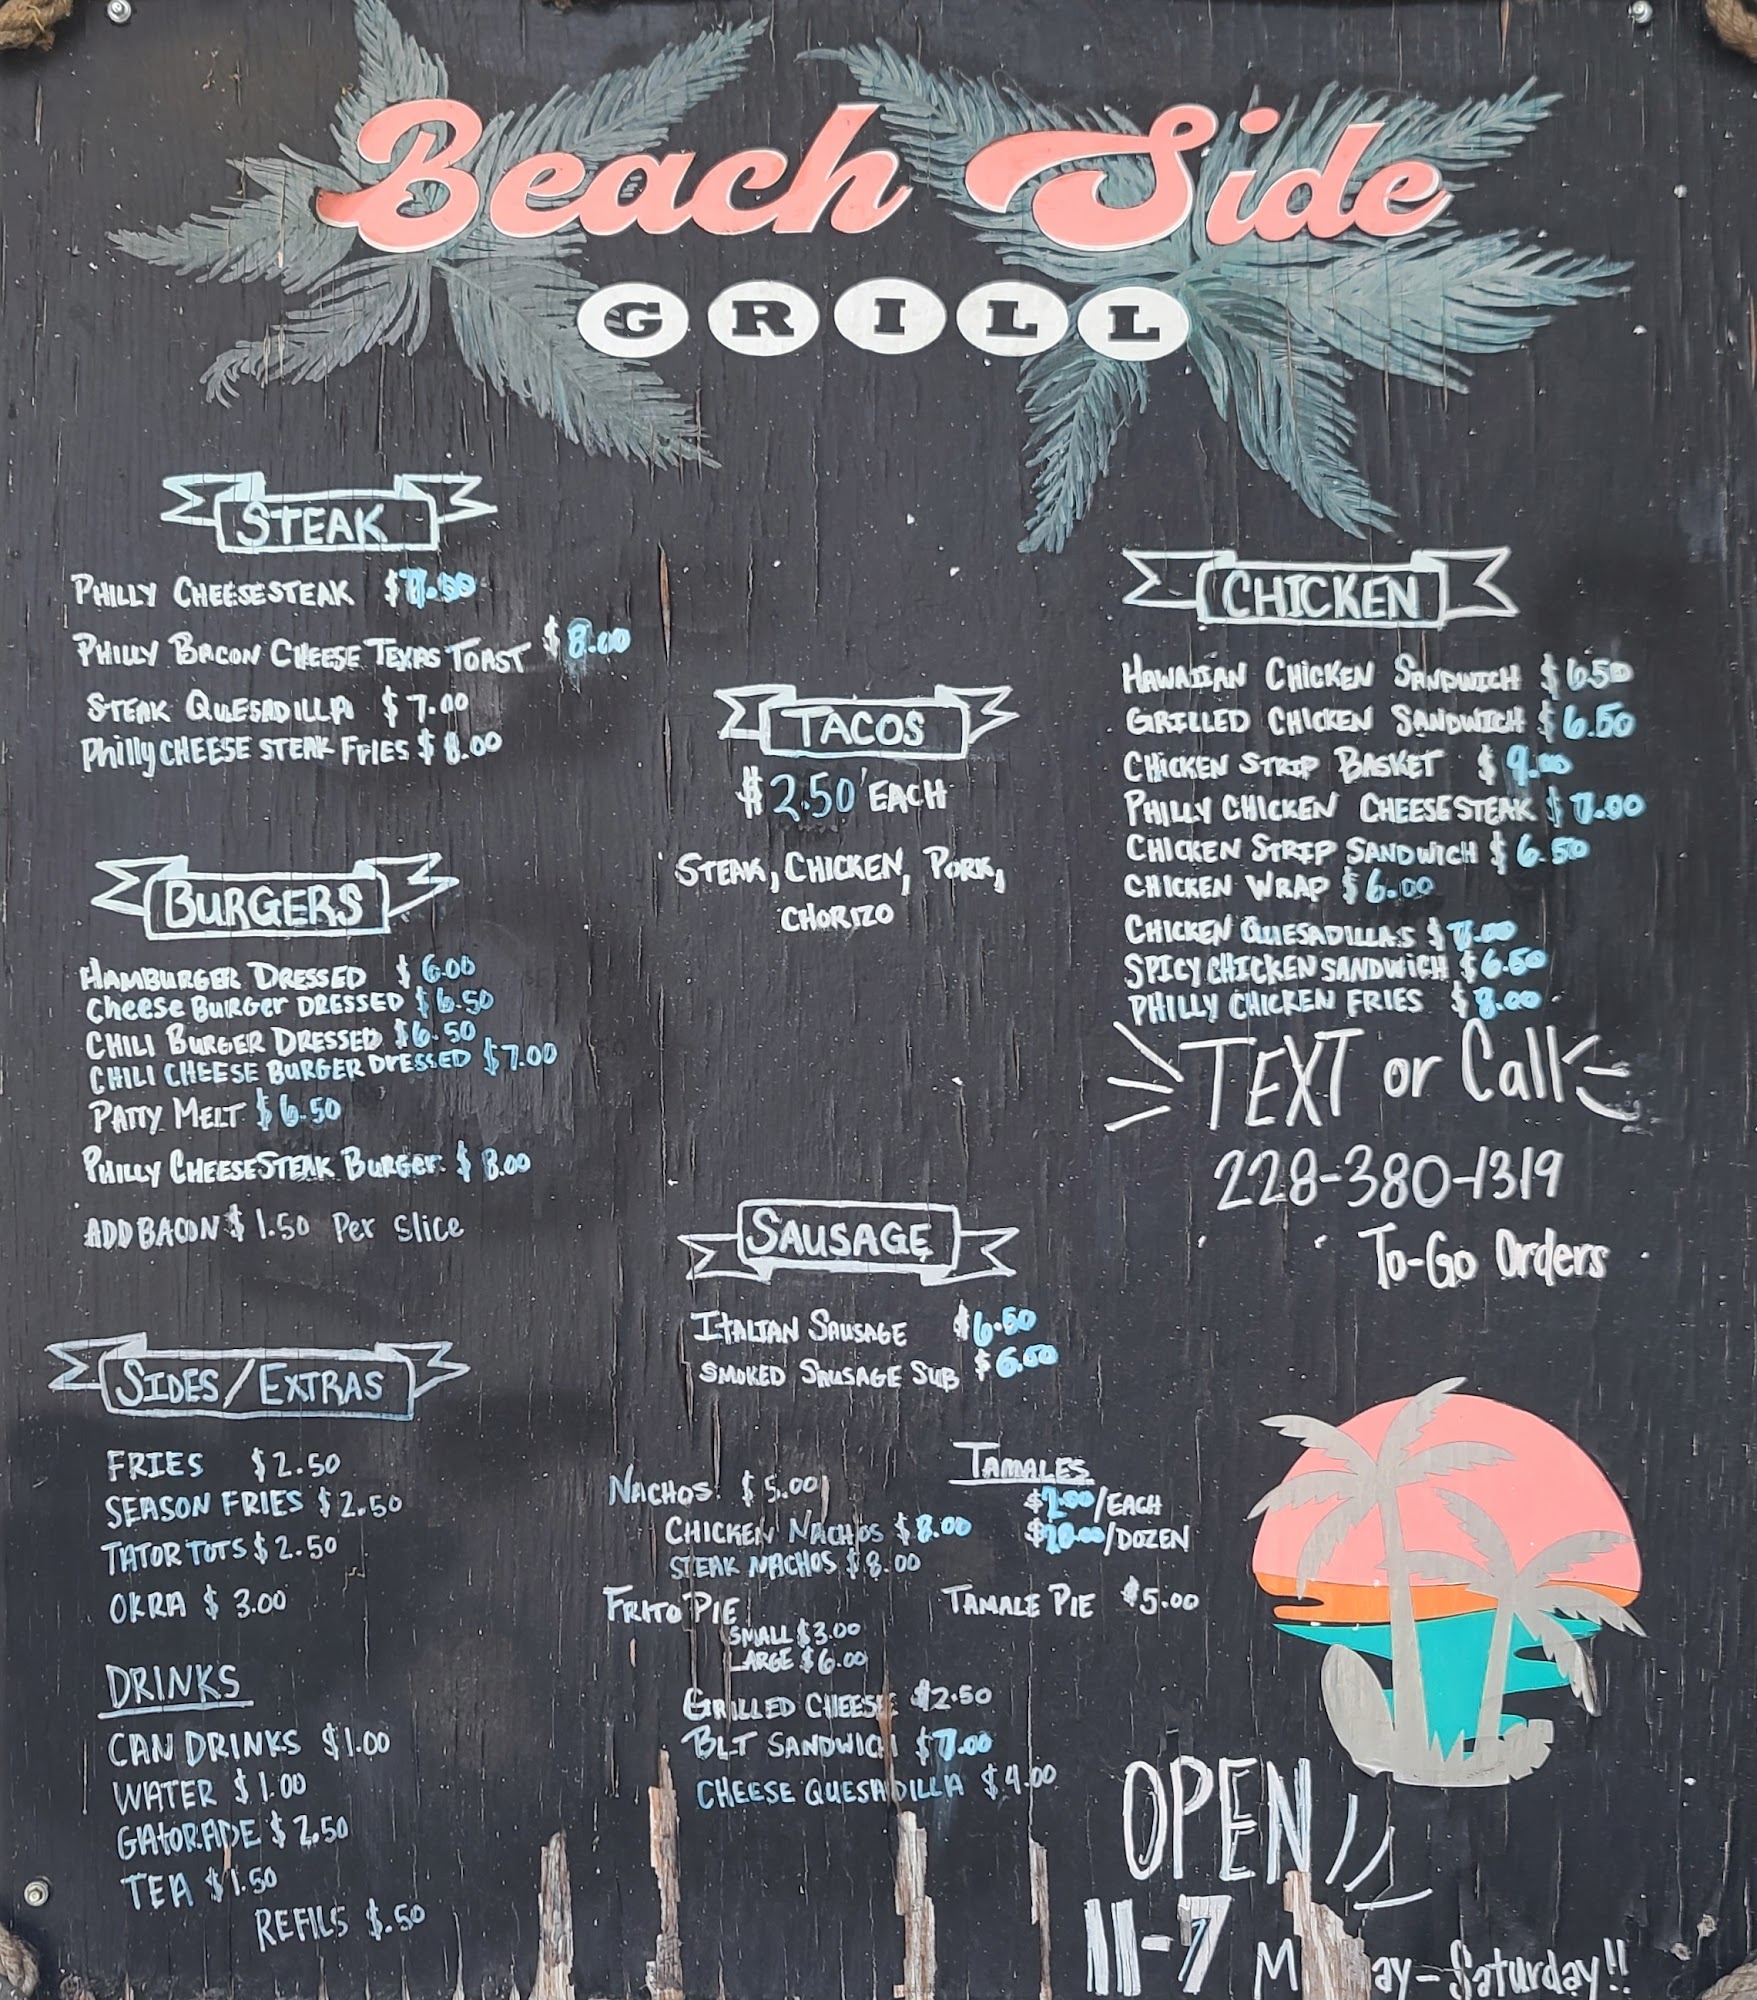 Beach Side
GRILL
STEAK
PHILLY CHEESESTEAK $7.50
PHILLY BACON CHEESE TEXAS TOAST $8.00
STEAK QUESADILLA $7.00
Philly CHEESE STEAK FrIES $8.00
BURGERS
HAMBURGER DRESSED $6.00
Cheese BurGer DRESSED $6.50
CHILI BURGER DRESSED $6.50
CHILI CHEESE BURGER DrESSED $7.00
PATTY MELT $6.50
PHILLY CHEESESTEAK BurGer $8.00
ADD BACON $1.50 Per Slice
SIDES/EXTRAS
FRIES $2.50
SEASON FRIES $2.50
TATOR TOTS $2.50
OKRA $3.00
DRINKS
CAN DRINKS $1.00
WATER $1.00
GATORADE $2.50
TEA $1.50
REFILS $.50
TACOS
$2.50 EACH
STEAK, CHICKEN, PORK,
CHORIZO
SAUSAGE
ITALIAN SAUSAGE $6.50
SMOKED SAUSAGE SUB $6.50
NACHOS $5.00
CHICKEN NACHOS $8.00
STEAK NACHOS $8.00
FRITO PIE
SMALL $3.00
LARGE $6.00
TAMALES
$2.00/EACH
$20.00/DOZEN
TAMALE PIE $5.00
GRILLED CHEESE $2.50
BLT SANDWICH $7.00
CHEESE QUESADILLA $4.00
CHICKEN
HAWAIIAN CHICKEN SANDWICH $6.50
GRILLED CHICKEN SANDWICH $6.50
CHICKEN STRIP BASKET $9.00
PHILLY CHICKEN CHEESESTEAK $7.00
CHICKEN STRIP SANDWICH $6.50
CHICKEN WRAP $6.00
CHICKEN QUESADILLAS $7.00
SPICY CHICKEN SANDWICH $6.50
PHILLY CHICKEN FRIES $8.00
TEXT or Call
228-380-1319
To-Go Orders
OPEN
11-7 M ay-Saturday!!